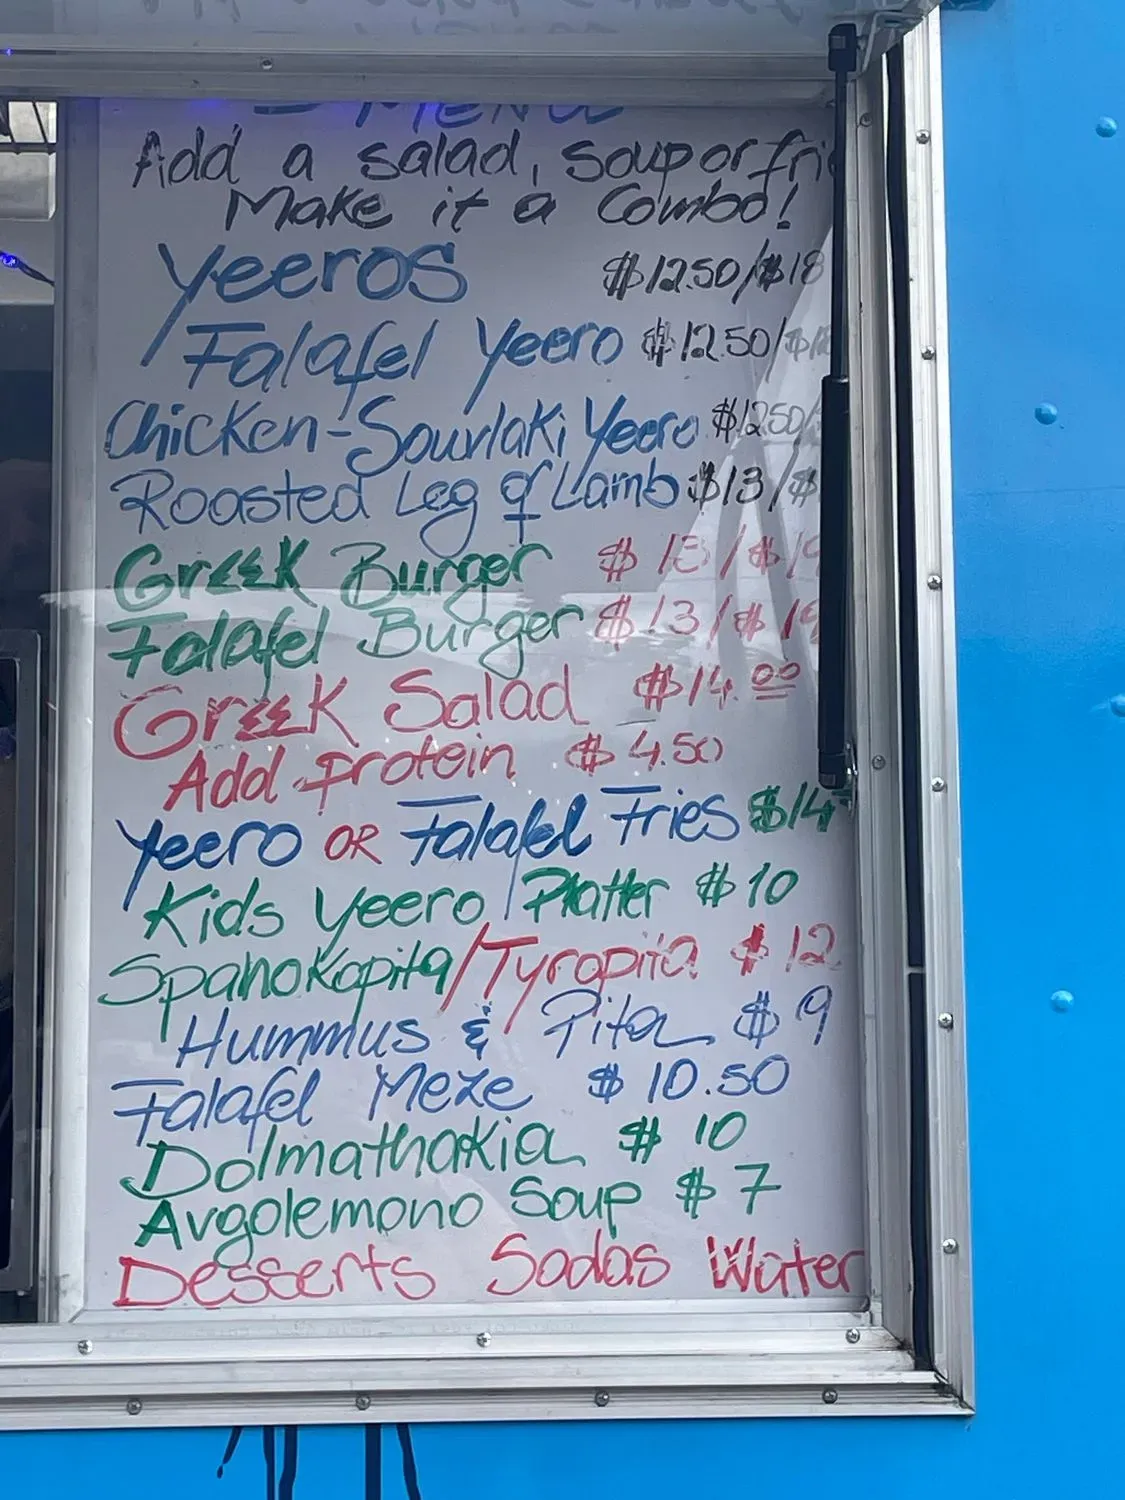 - MENU
Add a salad, soup or fri
Make it a Combo!
Yeeros $12.50/$18
Falafel Yeero $12.50/$18
Chicken-Souvlaki Yeero $12.50/
Roasted Leg of Lamb $13/$
Greek Burger $13/$19
Falafel Burger $13/$19
Greek Salad $14.00
Add protein $4.50
Yeero OR Falafel Fries $14
Kids Yeero/Platter $10
Spanokopita/Tyropita $12
Hummus & Pita $9
Falafel Meze $10.50
Dolmathakia $10
Avgolemono Soup $7
Desserts Sodas Water